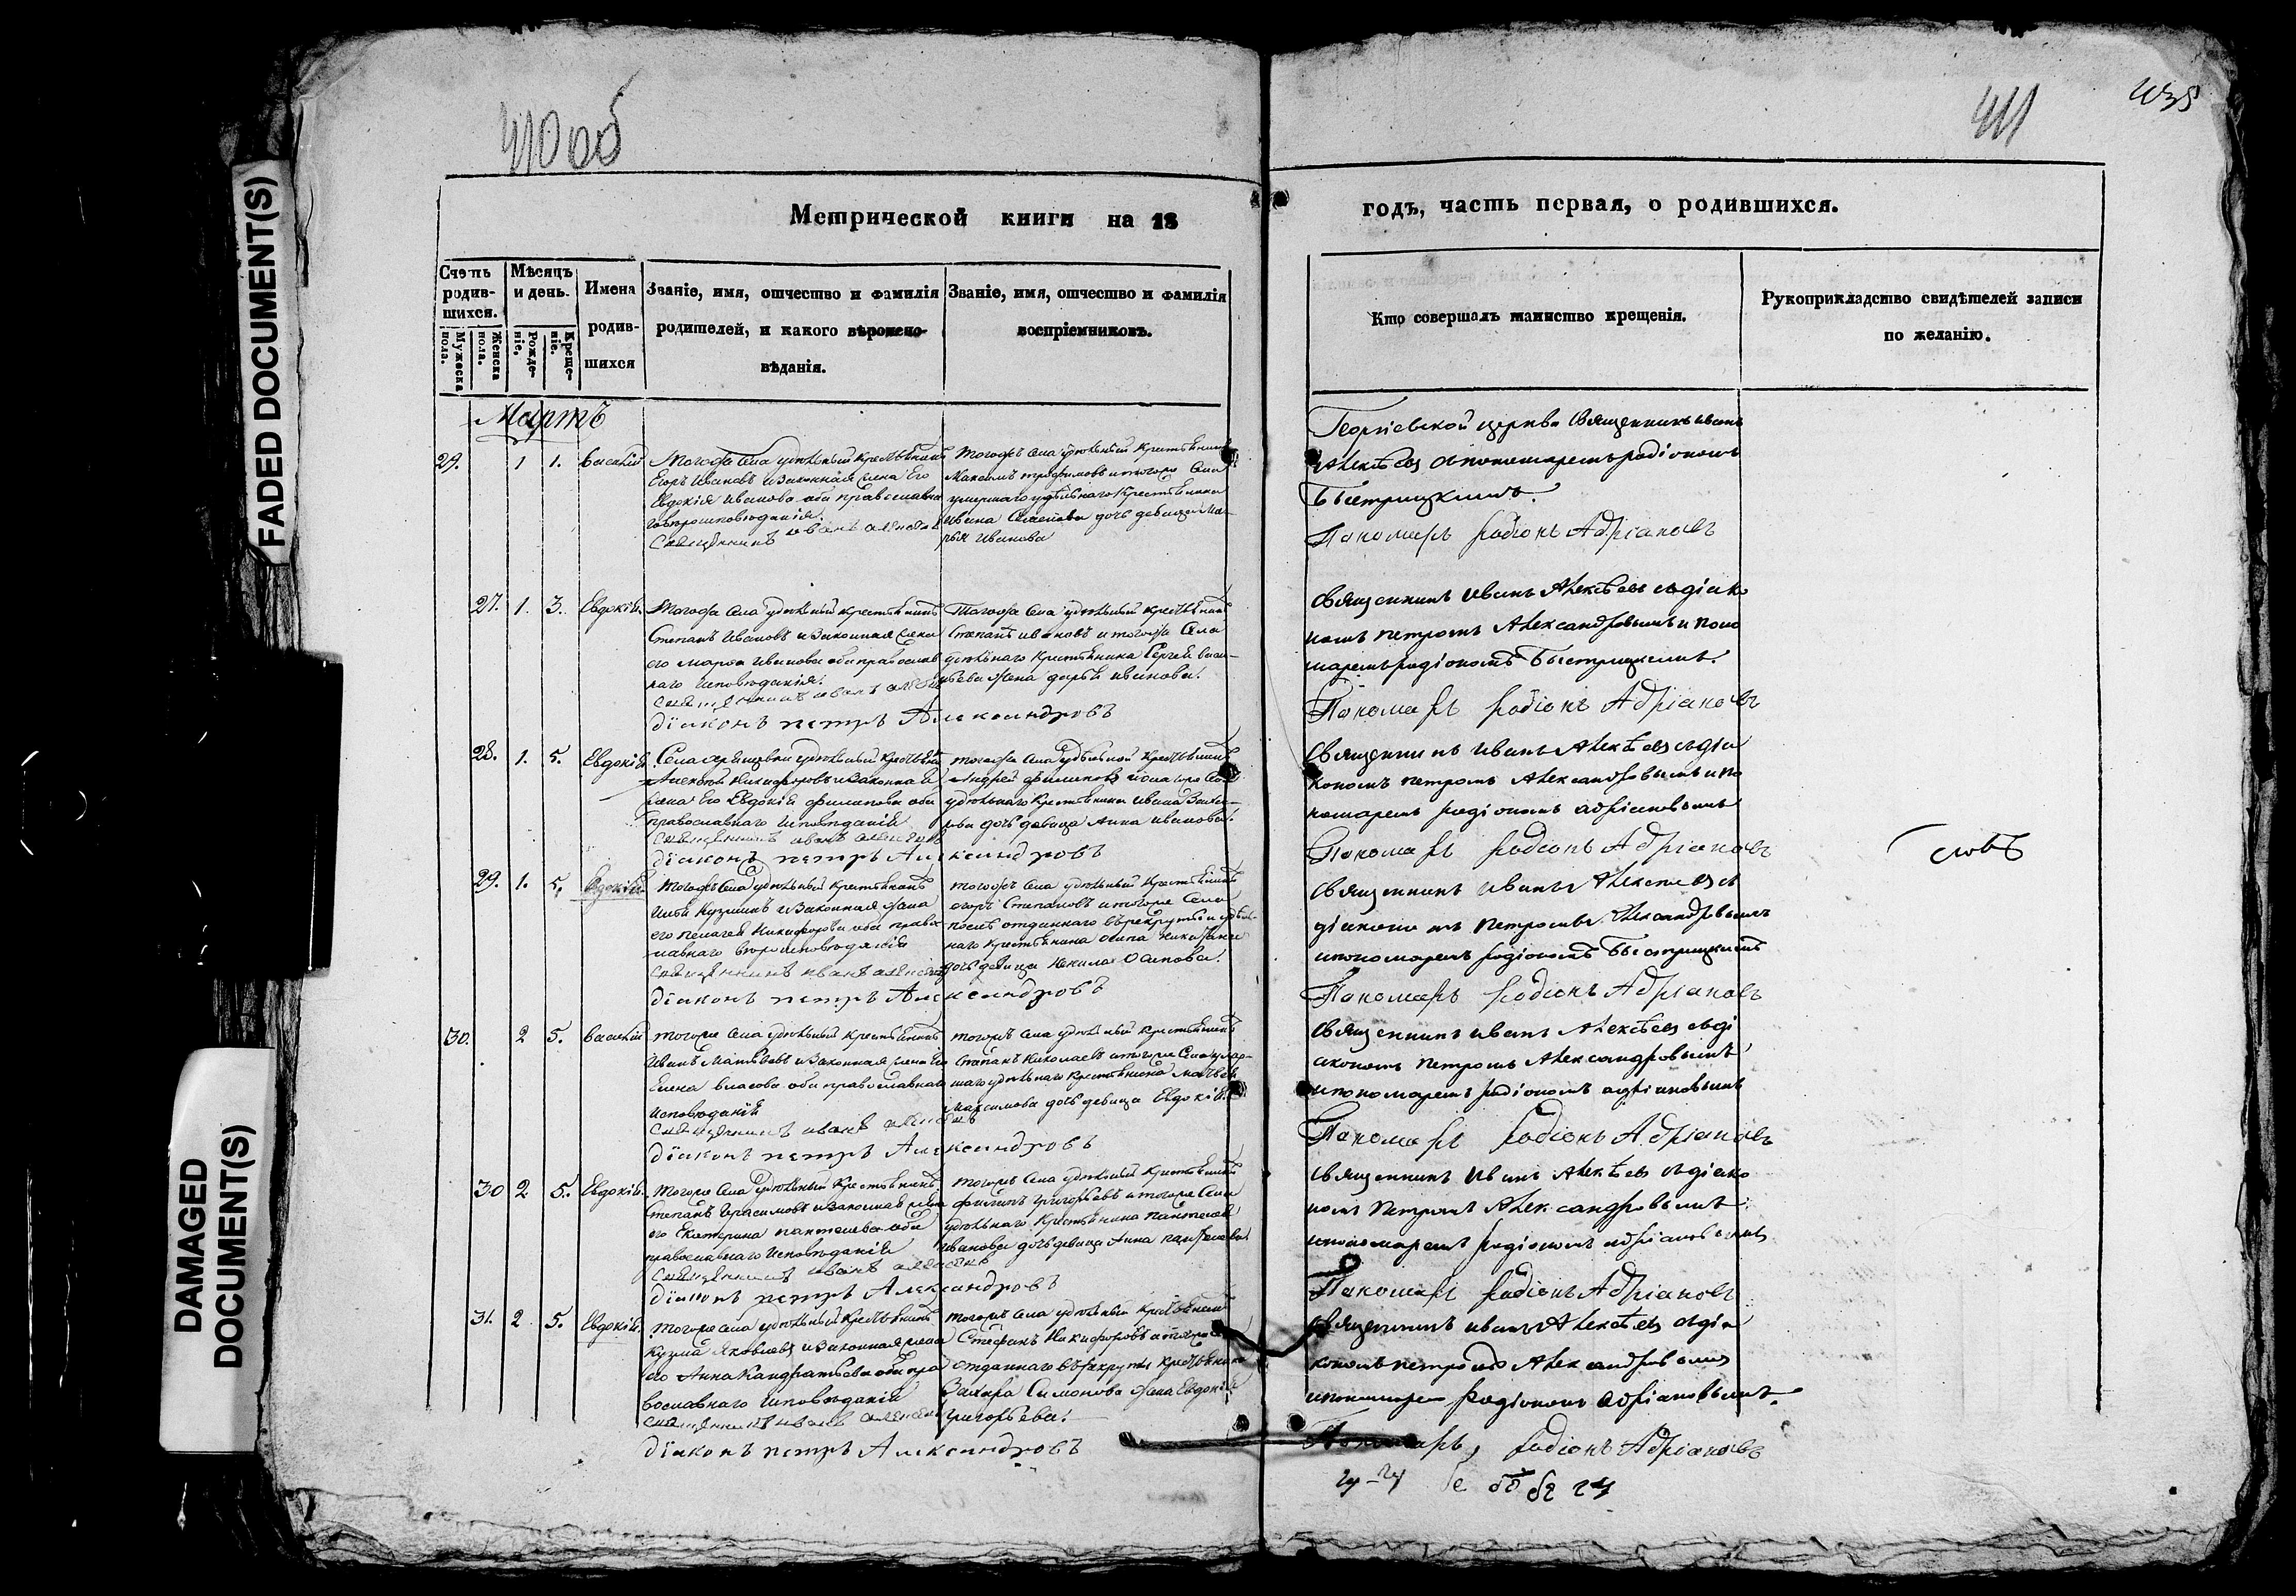 FADED DOCUMENT(S)
DAMAGED
DOCUMENT(S)
410 об
411
435
Метрической книги на 18
годъ, часть первая, о родившихся.
Счетъ родив-шихся.
Мужеска пола.
Женска пола.
Мѣсяцъ и день.
Рожде-ніе.
Креще-ніе.
Имена
родив-
шихся
Званіе, имя, отчество и фамилія
родителей, и какого вѣроиспо-
вѣданія.
Званіе, имя, отчество и фамилія
воспріемниковъ.
Кто совершалъ таинство крещенія.
Рукоприкладство свидѣтелей записи
по желанію.
Мартъ
29. 1 1. Василій
Тогожъ села удѣльный крестьянинъ
Егоръ Ивановъ и законная жена Его
Евдокія Иванова оба православна
Священникъ иванъ алексѣевъ
Тогожъ села удѣльный крестьянинъ
Максимъ трофимовъ и тогоже села
умершаго удѣльнаго крестьянина
ивана Семенова дочь девица Ма-
рья Иванова
Георгіевской церкви Священникъ иванъ
Алексѣевъ спономаремъ радіономъ
Быстрицкимъ.
Пономарь Радіонъ Адріановъ
27. 1. 3. Евдокія.
Тогожа села удѣльный крестьянинъ
Степанъ Ивановъ и законная жена
его Марѳа Иванова оба православ
наго исповѣданія.
Священникъ иванъ алексѣевъ
діаконъ петръ Александровъ
Тогожа села удѣльный крестьянинъ
Степанъ ивановъ и тогожа села
удѣльнаго крестьянина Сергея васи-
льева жена дарья иванова.
Священникъ Иванъ Алексѣевъ съдіако
номъ петромъ Александровымъ и поно
маремъ радіономъ Быстрицкимъ.
Пономарь Радіонъ Адріановъ
28. 1. 5. Евдокія
Алексѣй Никифоровъ и законная
жена Его Евдокія филипова оба
православнаго исповѣданія
Священникъ иванъ алексѣевъ
діаконъ петръ Александровъ
тогожа села удѣльной крестьянинъ
Андрей филиповъ и тогоже села
удѣльнаго крестьянина ивана Заха-
рова дочь девица Анна иванова.
Священникъ иванъ Алексѣевъ съдіа
кономъ петромъ Александровымъ и по
номаремъ радіономъ адріановымъ
Пономарь Радіонъ Адріановъ
29. 1. 5. Евдокія
тогожъ села удѣльный крестьянинъ
Кузминъ и законная жена
его пелагея Никифорова оба право
славнаго вероисповѣданія
Священникъ иванъ алексѣевъ
діаконъ петръ Александровъ
тогожъ села удѣльный крестьянинъ
егоръ Степановъ и тогоже села
наго крестьянина осипа
дочь девица Осипова.
Священникъ иванъ Алексѣевъ съ
діакономъ петромъ Александровымъ
ипономаремъ радіономъ Быстрицкимъ
Пономарь Радіонъ Адріановъ
30. 2 5. Василій
тогоже села удѣльный крестьянинъ
Иванъ Матвѣевъ и законная жена Его
Елена власова оба православнаго
исповѣданія
Священникъ иванъ алексѣевъ
діаконъ петръ Александровъ
тогожъ села удѣльный крестьянинъ
Степанъ Николаевъ и тогоже села умер-
шаго удѣльнаго крестьянина матвея
Максимова дочь девица Евдокія.
Священникъ иванъ Алексѣевъ съді
акономъ петромъ Александровымъ
ипономаремъ радіономъ адріановымъ
Пономарь Радіонъ Адріановъ
30 2 5. Евдокія.
тогоже села удѣльный крестьянинъ
Степанъ Герасимовъ и законная жена
его Екатерина пантелѣева оба
православнаго исповѣданія
Священникъ иванъ алексѣевъ
діаконъ петръ Александровъ
тогожъ села удѣльный крестьянинъ
филипъ григорьевъ и тогоже села
удѣльнаго крестьянина пантелея
иванова дочь девица Анна пантелева
Священникъ Иванъ Алексѣевъ съдіако
номъ петромъ Александровымъ
ипономаремъ радіономъ адріановымъ
Пономарь Радіонъ Адріановъ
31. 2 5. Евдокія.
тогоже села удѣльный крестьянинъ
Кузма Яковлевъ и законная жена
его Анна Кандратьева оба пра
вославнаго исповѣданія
Священникъ иванъ алексѣевъ
діаконъ петръ Александровъ
тогожъ села удѣльный крестьянинъ
Стефанъ Никифоровъ и тогоже
отданнаго въ рекруты крестьянина
Захара Симонова жена Евдокія
григорьева.
Священникъ иванъ Алексѣевъ съдіа
кономъ петромъ Александровымъ
ипономаремъ радіономъ адріановымъ.
Пономарь, Радіонъ Адріановъ